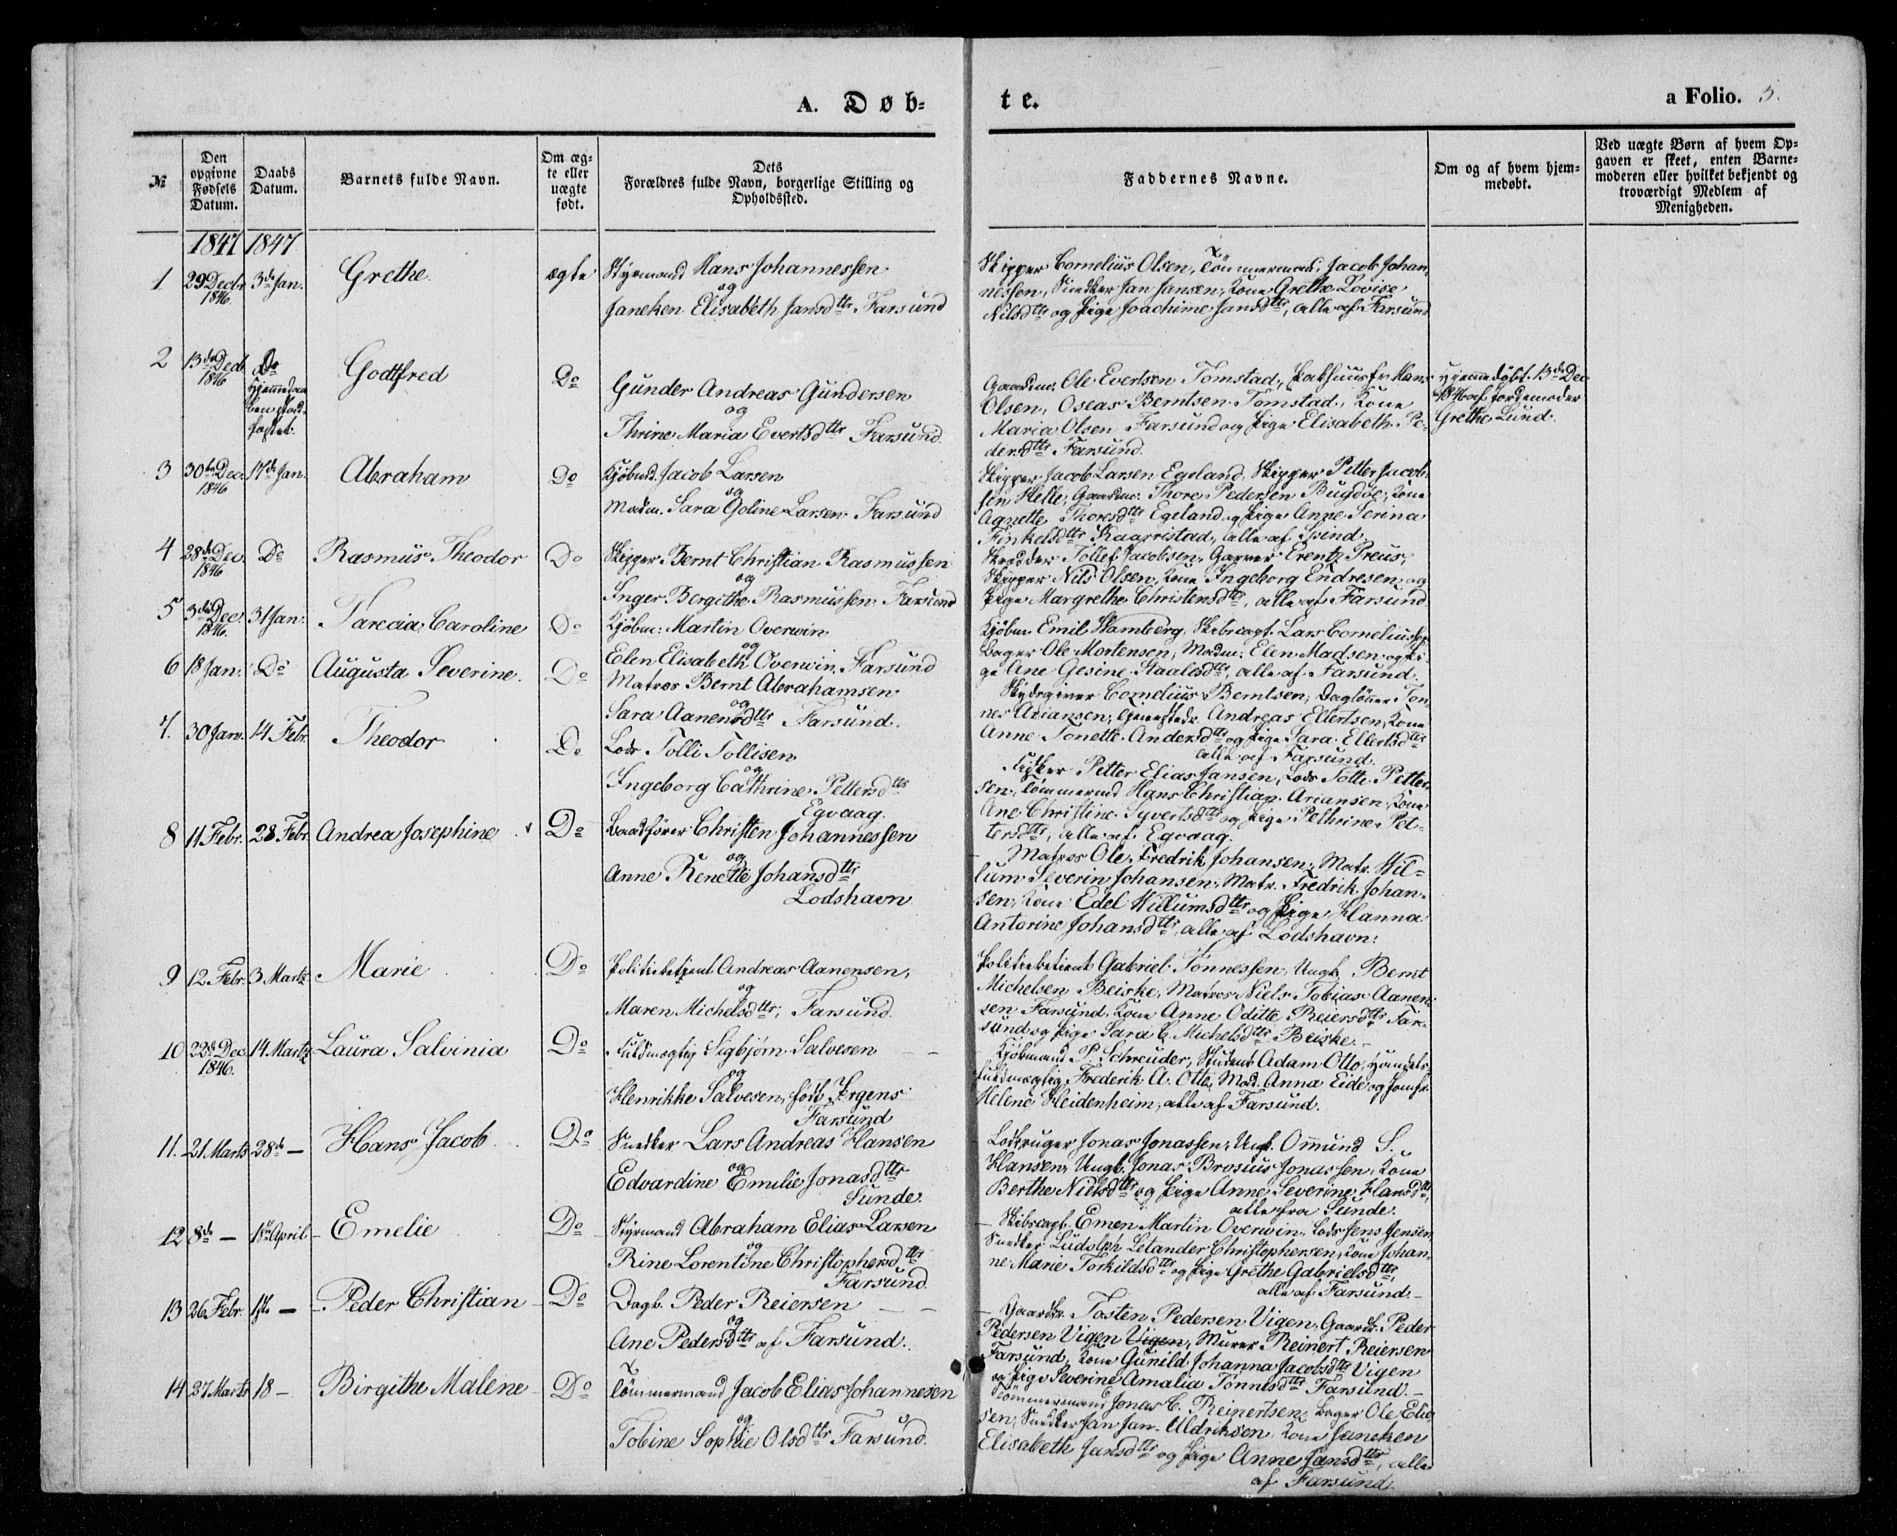 A. Døb-
te.
a Folio. 5.
№
Den opgivne Fødsels Datum.
Daabs Datum.
Barnets fulde Navn.
Om æg- te eller uægte født.
Dets
Forældres fulde Navn, borgerlige Stilling og
Opholdssted.
Faddernes Navne.
Om og af hvem hjem-
medøbt.
Ved uægte Børn af hvem Op-
gaven er skeet, enten Barne-
moderen eller hvilket bekjendt og
troværdigt Medlem af
Menigheden.
1847 1847
1 29 Decbr 1846. 3de Jan. Grethe. ægte Styrmand Hans Johannessen
og
Janeken Elisabeth Jansdttr Farsund
Skipper Cornelius Olsen, Tömmermand Jacob Johan-
nessen, Snedker Jan Jansen, Kone Grethe Lovise
Nilsdttr og Pige Joachime Jansdttr, alle af Farsund
2 13de Decb 1846 Do Hjemmedaa-
ben stad-
fæstet. Godtfred Do
Gunder Andreas Gundersen
og
Thrine Maria Evertsdttr Farsund.
Gaardm. Ole Evertsen Tomstad, Hans
Olsen, Oseas Berntsen Tomstad, Kone
Maria Olsen Farsund og Pige Elisabeth Pe-
dersdttr Farsund.
Hjemmedöbt 13de Dec
1846 af Jordemoder
Grethe Lund.
3 30te Dec. 1846 17de Jan. Abraham Do Kjöbmd. Jacob Larsen
og
Madm. Sara Goline Larsen Farsund
Skipper Jacob Larsen Egeland, Skipper Petter Jacob-
sen Helle, Gaardm. Thore Pedersen Bugdøe, Kone
Agnette Thoresdttr Egeland og Pige Anne Serina
Finkelsdttr Kaarrestad, alle af Spind.
4 28de Dec. 1846 Do Rasmus Theodor Do Skipper Bernt Christian Rasmussen
og
Inger Bergithe Rasmussen Farsund
Skrædder Tollef Jacobsen, Garver Erentz Preus,
Skipper Nils Olsen, Kone Ingeborg Endresen og
Pige Margrethe Christensdttr, alle af Farsund
5 3de Dec. 1846. 31 Jan. Tarecia Caroline Do Kjöbm. Martin Overwin
og
Elen Elisabeth Overwin Farsund
Kjöbm. Emil Stamberg, Skibscapt. Lars Corneliussen
Bager Ole Mortensen, Madm. Elen Madsen og Pi-
ge Ane Gesine Staalesdttr, alle af Farsund.
6 18 Jan. Do Augusta Severine. Do Matros Bernt Abrahamsen
og
Sara Aanensdttr Farsund.
Cornelius Berntsen, Daglönner Ton-
nes Ariansen, Andreas Ellertsen, Kone
Anne Tonette Andersdttr og Pige Sara Ellertsdttr
alle af Farsund.
7. 30 Jan. 14 Febr. Theodor Do Lods Tolli Tollisen
og
Ingeborg Cathrine Pettersdttr
Egvaag.
Fisker Petter Elias Jansen, Lods Petter-
sen, Tömmermd Hans Christian Ariansen, Kone
Ane Christine Syvertsdttr og Pige Pethrine Pet-
tersdttr, alle af Egvaag.
8 11 Febr. 28 Febr. Andrea Josephine Do Baadförer Christen Johannessen
og
Anne Renette Johansdttr
Lodshavn
Matros Ole Fredrik Johansen, Matr. Wil-
lum Severin Johansen, Matr. Fredrik Johan-
sen, Kone Edel Willumsdttr og Pige Hanna
Antorine Johansdttr, alle af Lodshavn.
9 12 Febr. 3 Marts. Marie Do Politiebetjent Andreas Aanensen,
og
Maren Michelsdttr, Farsund.
Politiebetjent Gabriel Tönnessen, Ungk. Bernt
Michelsen Beiske, Matros Niels Tobias Aanen-
sen Farsund, Kone Anne Oditte Reiersdttr Far-
sund og Pige Sara C. Michelsdttr Beiske.
10 23de Dec 1846. 14 Marts Laura Salvinia Do Fuldmægtig Sigbjørn Salvesen
og
Henrikke Salvesen, født Jrgens
Farsund
Kjöbmand P. Schreuder, Student Adam Otto, Handels-
fuldmægtig Frederik A. Otto, Mad. Anna Eide og Jomfr.
Helene Heidenheim, alle af Farsund.
11. 21 Marts 28de — Hans Jacob Do Snedker Lars Andreas Hansen
og
Edvardine Emilie Jonasdttr
Sunde.
Jonas Jonassen, Ungk. Ommund S.
Hansen, Ungk. Jonas Brosius Jonassen, Kone
Berthe Nielsdttr og Pige Anne Severine Hansdtt,
alle fra Sunde.
12 8de — 18de April Emelie Do Styrmand Abraham Elias Larsen
og
Rine Lorentine Christophersdttr
Farsund
Skibscapt. Emen Martin Overwin, Lods Jens Jensen
Snedker Ludolph Letander Christophersen, Kone Johan-
ne Marie Torkildsdttr og Pige Grethe Gabrielsdttr,
alle af Farsund.
13 26 Febr. — Peder Christian Do Dagl. Peder Reiersen
og
Ane Pedersdttr af Farsund.
Gaardbr. Tosten Pedersen Vigen, Gaardbr. Peder
Pedersen Vigen Vigen, Murer Reinert Reiersen
Farsund, Kone Gunild Johanna Jacobsdttr Vigen
og Pige Severine Amalia Tönnesdttr Farsund.
14 27 Marts 18 — Birgithe Malene Do Tömmermand Jacob Elias Johannesen
og
Tobine Sophie Olsdttr Farsund.
Tömmermand Jonas C. Reinertsen, Bager Ole Elia-
sen, Snedker Jan Jan. Uldriksen Kone Janeken
Elisabeth Jansdttr og Pige Anne Jansdttr, alle
af Farsund